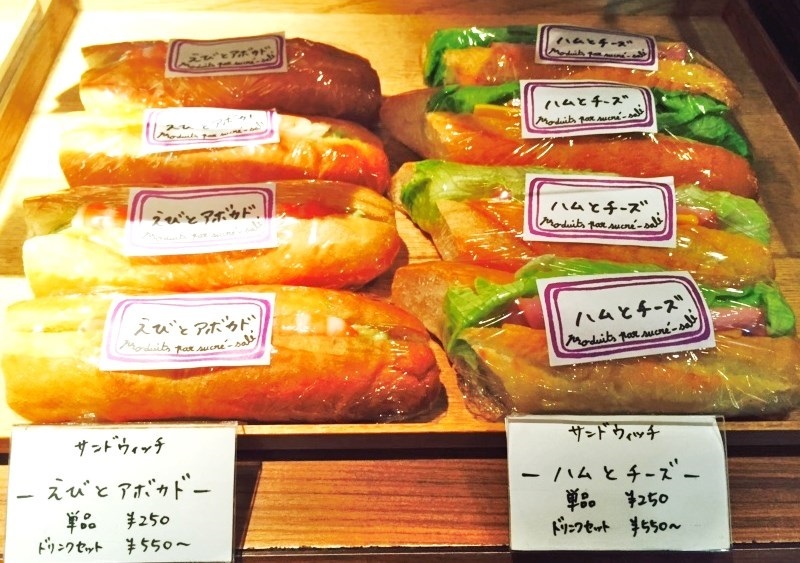 えびとアボカド
Produits par sucré-salé
えびとアボカド
Produits par sucré-salé
えびとアボカド
Produits par sucré-salé
えびとアボカド
Produits par sucré-salé
ハムとチーズ
Produits par sucré-salé
ハムとチーズ
Produits par sucré-salé
ハムとチーズ
Produits par sucré-salé
ハムとチーズ
Produits par sucré-salé
サンドウィッチ
－えびとアボカド－
単品 ¥250
ドリンクセット ¥550～
サンドウィッチ
－ハムとチーズ－
単品 ¥250
ドリンクセット ¥550～